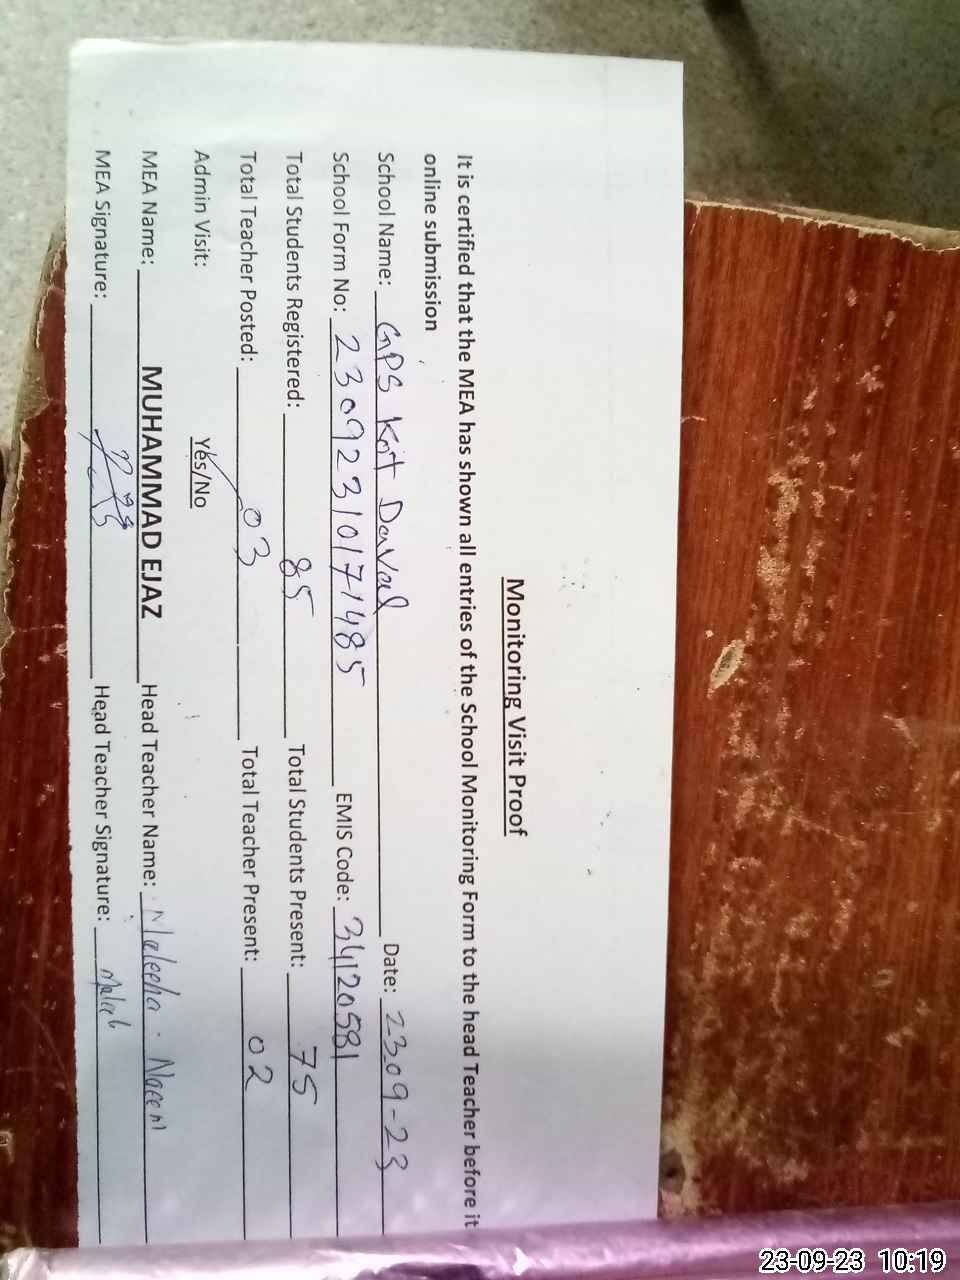 Monitoring Visit Proof
It is certified that the MEA has shown all entries of the School Monitoring Form to the head Teacher before it
online submission
School Name: GPS Kot Daval Date: 23.09-23
School Form No: 23092310171485 EMIS Code: 34120581
Total Students Registered: 85 Total Students Present: 75
Total Teacher Posted: 03 Total Teacher Present: 02
Admin Visit: Yes/No
MEA Name: MUHAMMAD EJAZ Head Teacher Name: Maleeha . Naeem
MEA Signature: Head Teacher Signature:
23-09-23 10:19